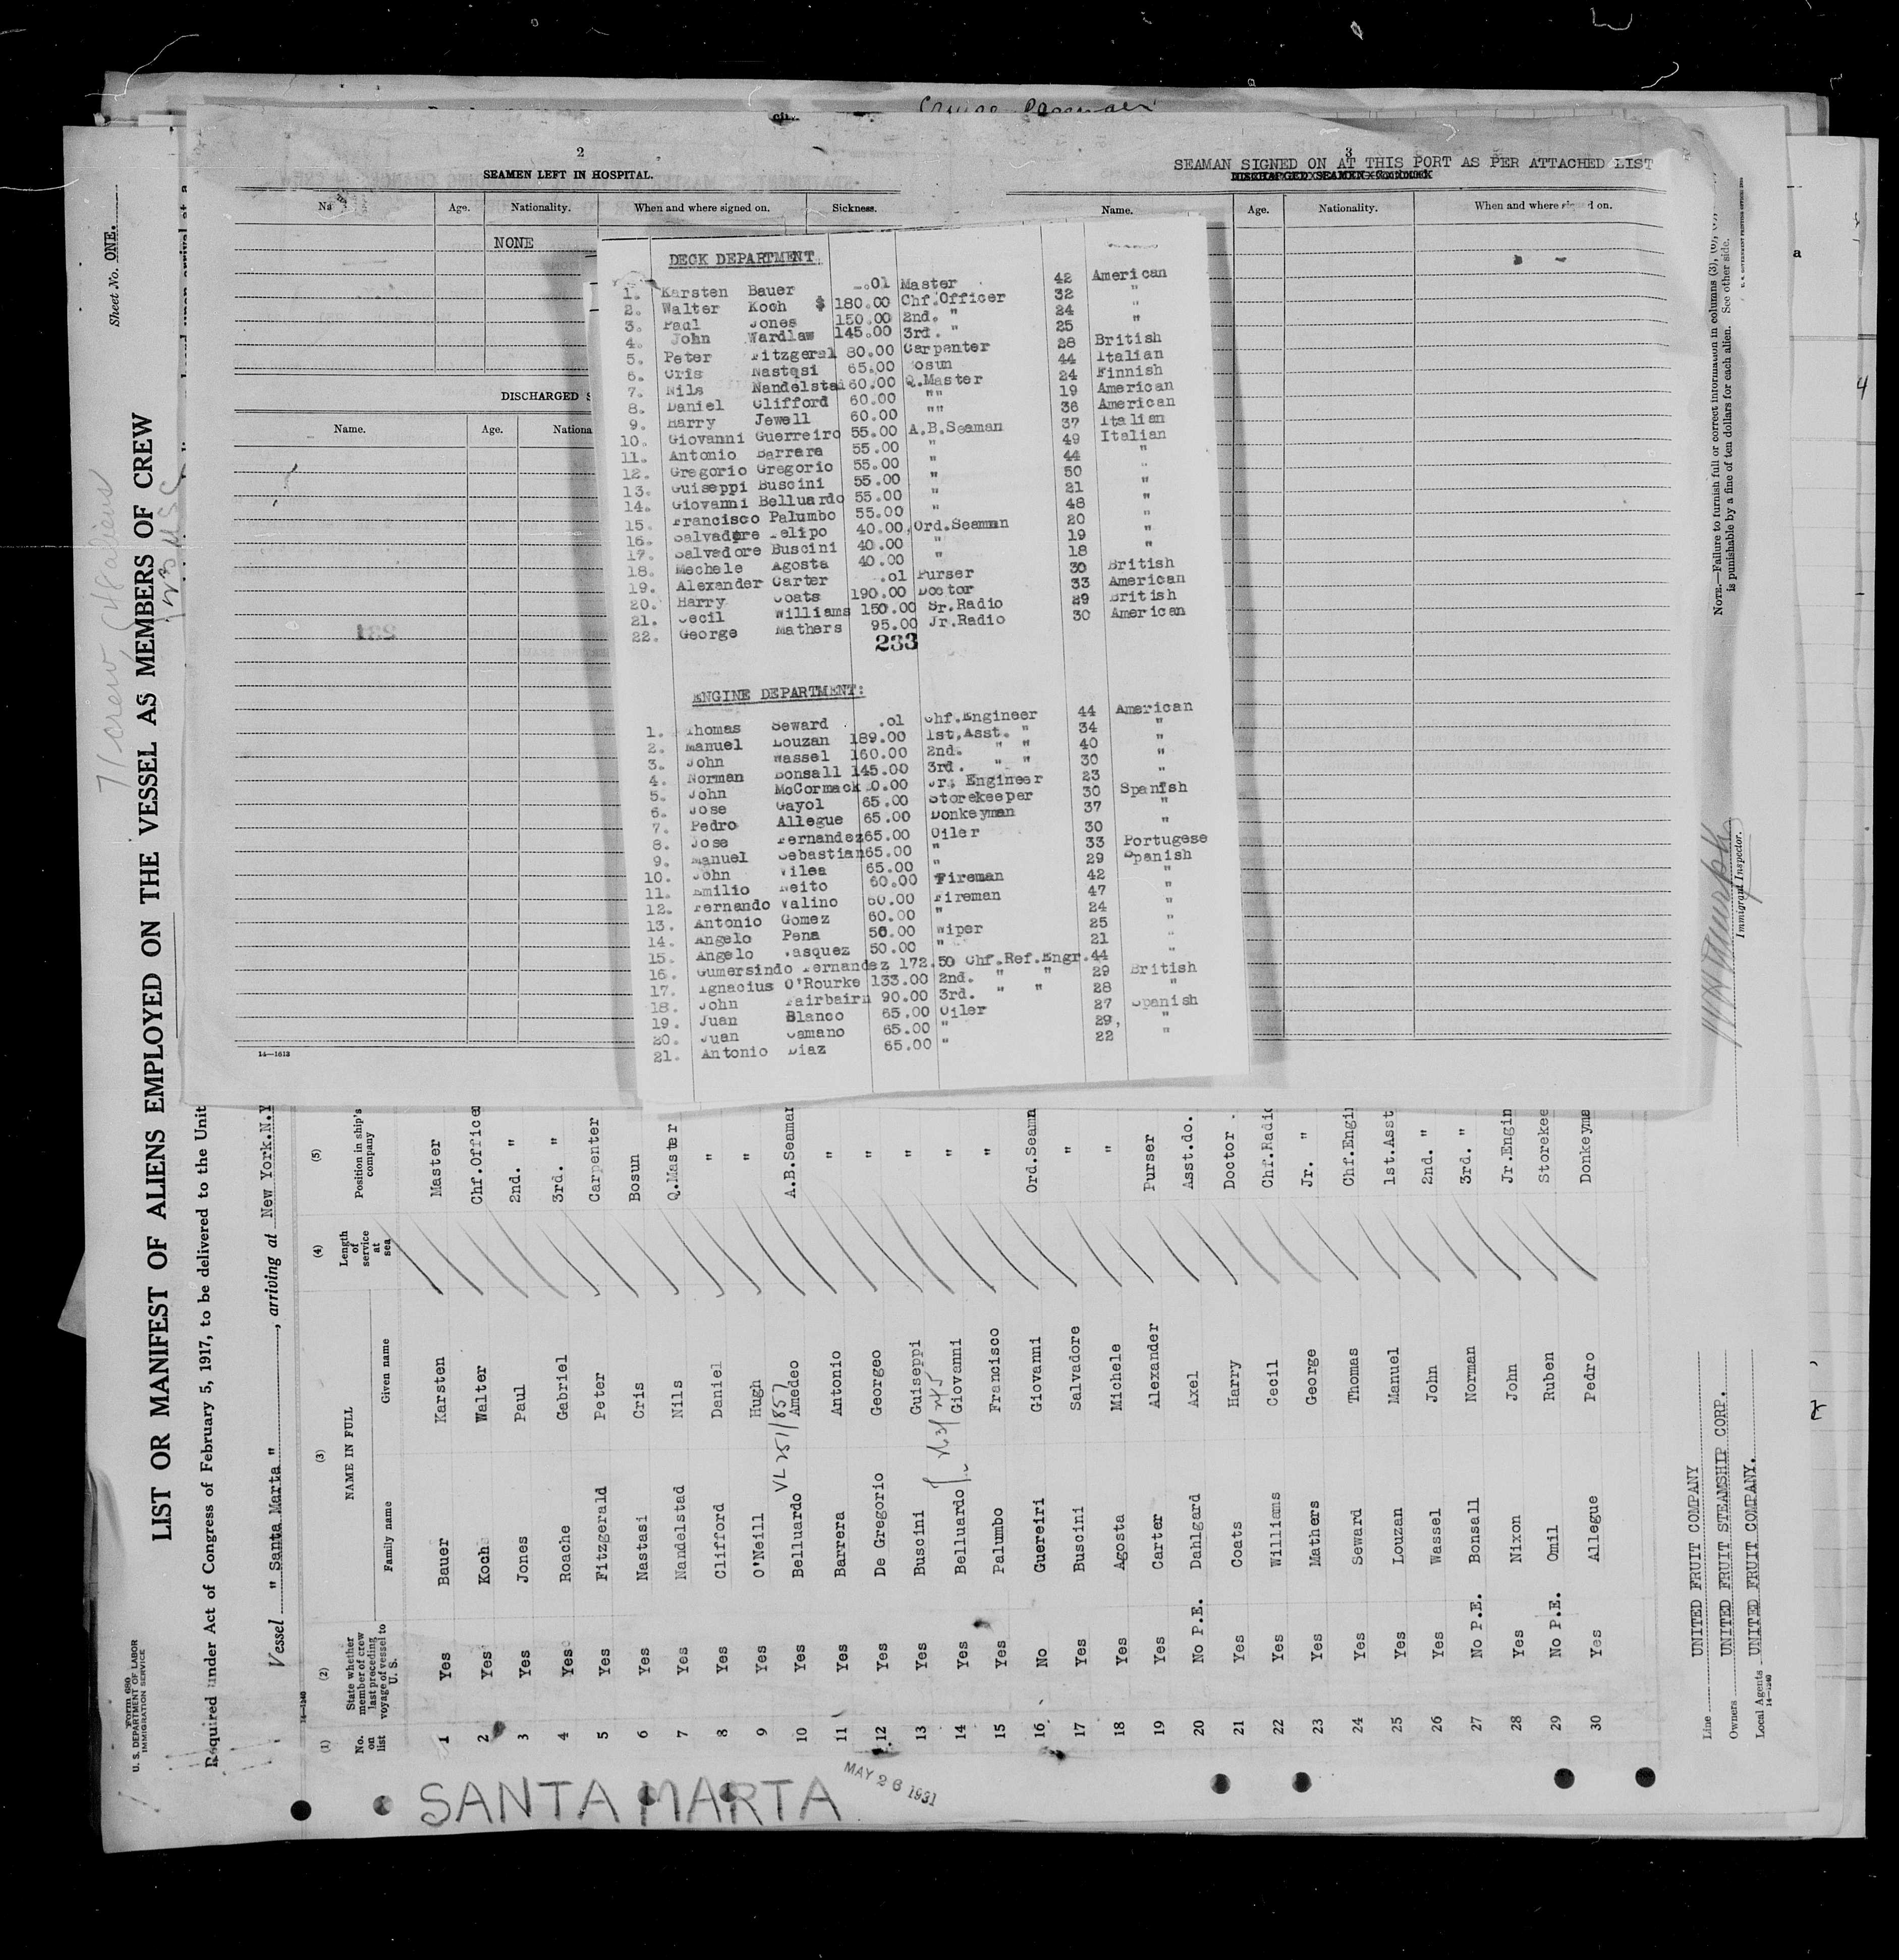 2
SEAMEN LEFT IN HOSPITAL.
Age. Nationality. When and where signed on. Sickness.
NONE
DISCHARGED
Name. Age.
14—1613
3
SEAMAN SIGNED ON AT THIS PORT AS PER ATTACHED LIST
DISCHARGED SEAMEN
Name. Age. Nationality. When and where signed on.
DECK DEPARTMENT
1. Karsten Bauer .01 Master 42 American
2. Walter Koch $ 180.00 Chf.Officer 32 "
3. Paul Jones 150.00 2nd. " 24 "
4. John Wardlaw 145.00 3rd. " 25 "
5. Peter Fitzgeral 80.00 Carpenter 28 British
6. Cris Nastasi 65.00 Bosun 44 Italian
7. Nils Nandelstad 60.00 Q.Master 24 Finnish
8. Daniel Clifford 60.00 "" 19 American
9. Harry Jewell 60.00 "" 36 American
10. Giovanni Guerreiro 55.00 A.B.Seaman 37 Italian
11. Antonio Barrera 55.00 " 49 Italian
12. Gregorio Gregorio 55.00 " 44 "
13. Guiseppi Buscini 55.00 " 50 "
14. Giovanni Belluardo 55.00 " 21 "
15. Francisco Palumbo 55.00 " 48 "
16. Salvadore Felipo 40.00 Ord.Seaman 20 "
17. Salvadore Buscini 40.00 " 19 "
18. Mechele Agosta 40.00 " 18 "
19. Alexander Carter .01 Purser 30 British
20. Harry Coats 190.00 Doctor 33 American
21. Cecil Williams 150.00 Sr.Radio 29 British
22. George Mathers 95.00 Jr.Radio 30 American
233
ENGINE DEPARTMENT:
1. Thomas Seward .01 Chf.Engineer 44 American
2. Manuel Louzan 189.00 1st.Asst. " 34 "
3. John Wassel 160.00 2nd. " " 40 "
4. Norman Bonsall 145.00 3rd. " " 30 "
5. John McCormack 0.00 Jr. Engineer 23 "
6. Jose Gayol 65.00 Storekeeper 30 Spanish
7. Pedro Allegue 65.00 Donkeyman 37 "
8. Jose Fernandez 65.00 Oiler 30 "
9. Manuel Sebastian 65.00 " 33 Portugese
10. John Vilea 65.00 " 29 Spanish
11. Emilio Neito 60.00 Fireman 42 "
12. Fernando Valino 60.00 Fireman 47 "
13. Antonio Gomez 60.00 " 24 "
14. Angelo Pena 50.00 Wiper 25 "
15. Angelo Vasquez 50.00 " 21 "
16. Gumersindo Fernandez 172.50 Chf.Ref.Engr. 44 "
17. Ignacius O'Rourke 133.00 2nd. " " 29 British
18. John Fairbairn 90.00 3rd. " " 28 "
19. Juan Blanco 65.00 Oiler 27 Spanish
20. Juan Camano 65.00 " 29, "
21. Antonio Diaz 65.00 " 22 "
Form 680
U. S. DEPARTMENT OF LABOR
IMMIGRATION SERVICE
Sheet No. ONE.
71 crew, 48 aliens
23 USC
LIST OR MANIFEST OF ALIENS EMPLOYED ON THE VESSEL AS MEMBERS OF CREW
Required under Act of Congress of February 5, 1917, to be delivered to the Unit
Vessel " Santa Marta ", arriving at New York.N.Y
14—1240
(1) (2) (3) (4) (5)
No. on list
State whether member of crew last preceding voyage of vessel to U. S.
NAME IN FULL
Family name Given name
Length of service at sea
Position in ship's company
1 Yes Bauer Karsten Master
2 Yes Koch Walter Chf.Office
3 Yes Jones Paul 2nd. "
4 Yes Roache Gabriel 3rd. "
5 Yes Fitzgerald Peter Carpenter
6 Yes Nastasi Cris Bosun
7 Yes Nandelstad Nils Q.Master
8 Yes Clifford Daniel "
9 Yes O'Neill Hugh "
VL 251/857
10 Yes Belluardo Amedeo A.B.Seaman
11 Yes Barrera Antonio "
12 Yes De Gregorio Georgeo "
13 Yes Buscini Guiseppi "
14 Yes Belluardo Giovanni "
15 Yes Palumbo Francisco "
16 No Guereiri Giovanni Ord.Seamn
17 Yes Buscini Salvadore "
18 Yes Agosta Michele "
19 Yes Carter Alexander Purser
20 No P.E. Dahlgard Axel Asst.do.
21 Yes Coats Harry Doctor
22 Yes Williams Cecil Chf.Radio
23 Yes Mathers George Jr. "
24 Yes Seward Thomas Chf.Engi
25 Yes Louzan Manuel 1st.Asst
26 Yes Wassel John 2nd. "
27 No P.E. Bonsall Norman 3rd. "
28 Yes Nixon John Jr.Engin
29 No P.E. Omil Ruben Storekee
30 Yes Allegue Pedro Donkeyma
Line UNITED FRUIT COMPANY
Owners UNITED FRUIT STEAMSHIP CORP.
Local Agents UNITED FRUIT COMPANY.
14—1240
Immigrant Inspector.
NOTE.—Failure to furnish full or correct information in columns (3), (6),
is punishable by a fine of ten dollars for each alien. See other side.
SANTA MARTA
MAY 26 1931